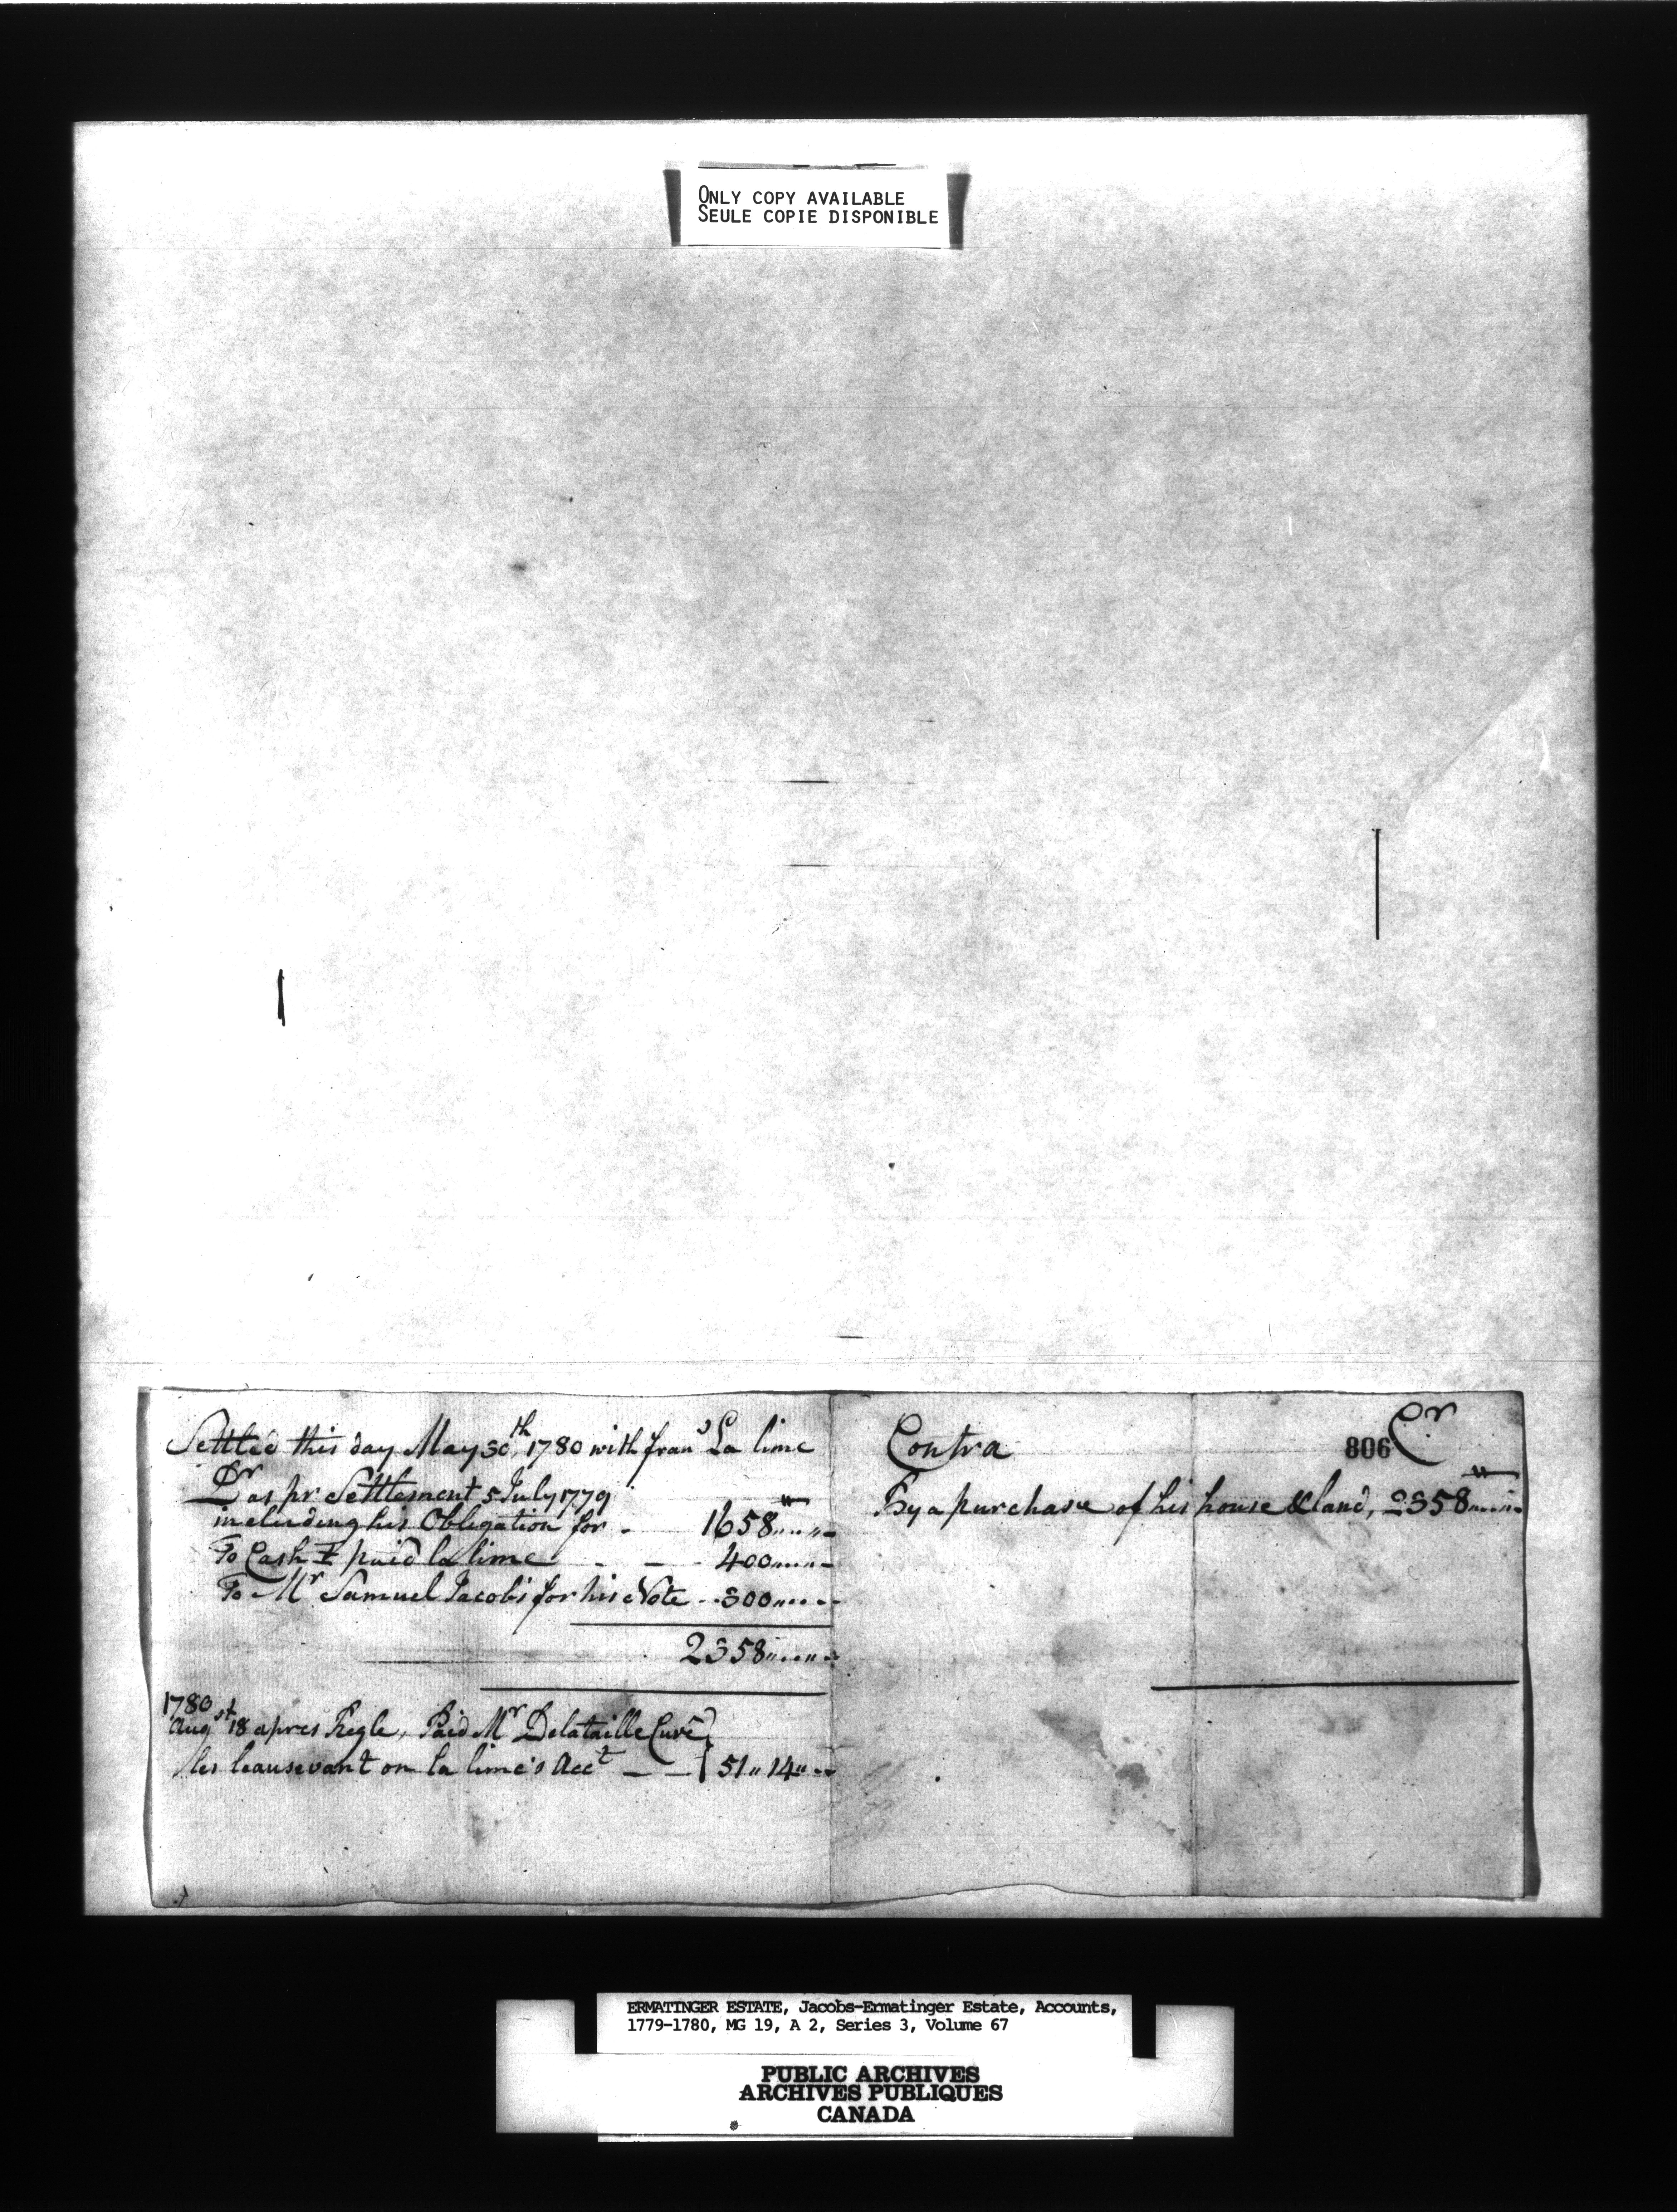 ONLY COPY AVAILABLE
SEULE COPIE DISPONIBLE
Settled this day May 30th, 1780 with frans La lime
Dr as pr Settlement 5 July 1779
including his Obligation for - 1658 "
To Cash I paid la lime - - - 400
To Mr Samuel Jacobs for his Note - 300
2358
1780
Augst 18 apres Regle, Paid Mr Delataille Curé
les on la lime's Acct - - 51 " 14 "
Contra Cr
806
By a purchase of his house & land, 2358
ERMATINGER ESTATE, Jacobs-Ermatinger Estate, Accounts,
1779-1780, MG 19, A 2, Series 3, Volume 67
PUBLIC ARCHIVES
ARCHIVES PUBLIQUES
CANADA